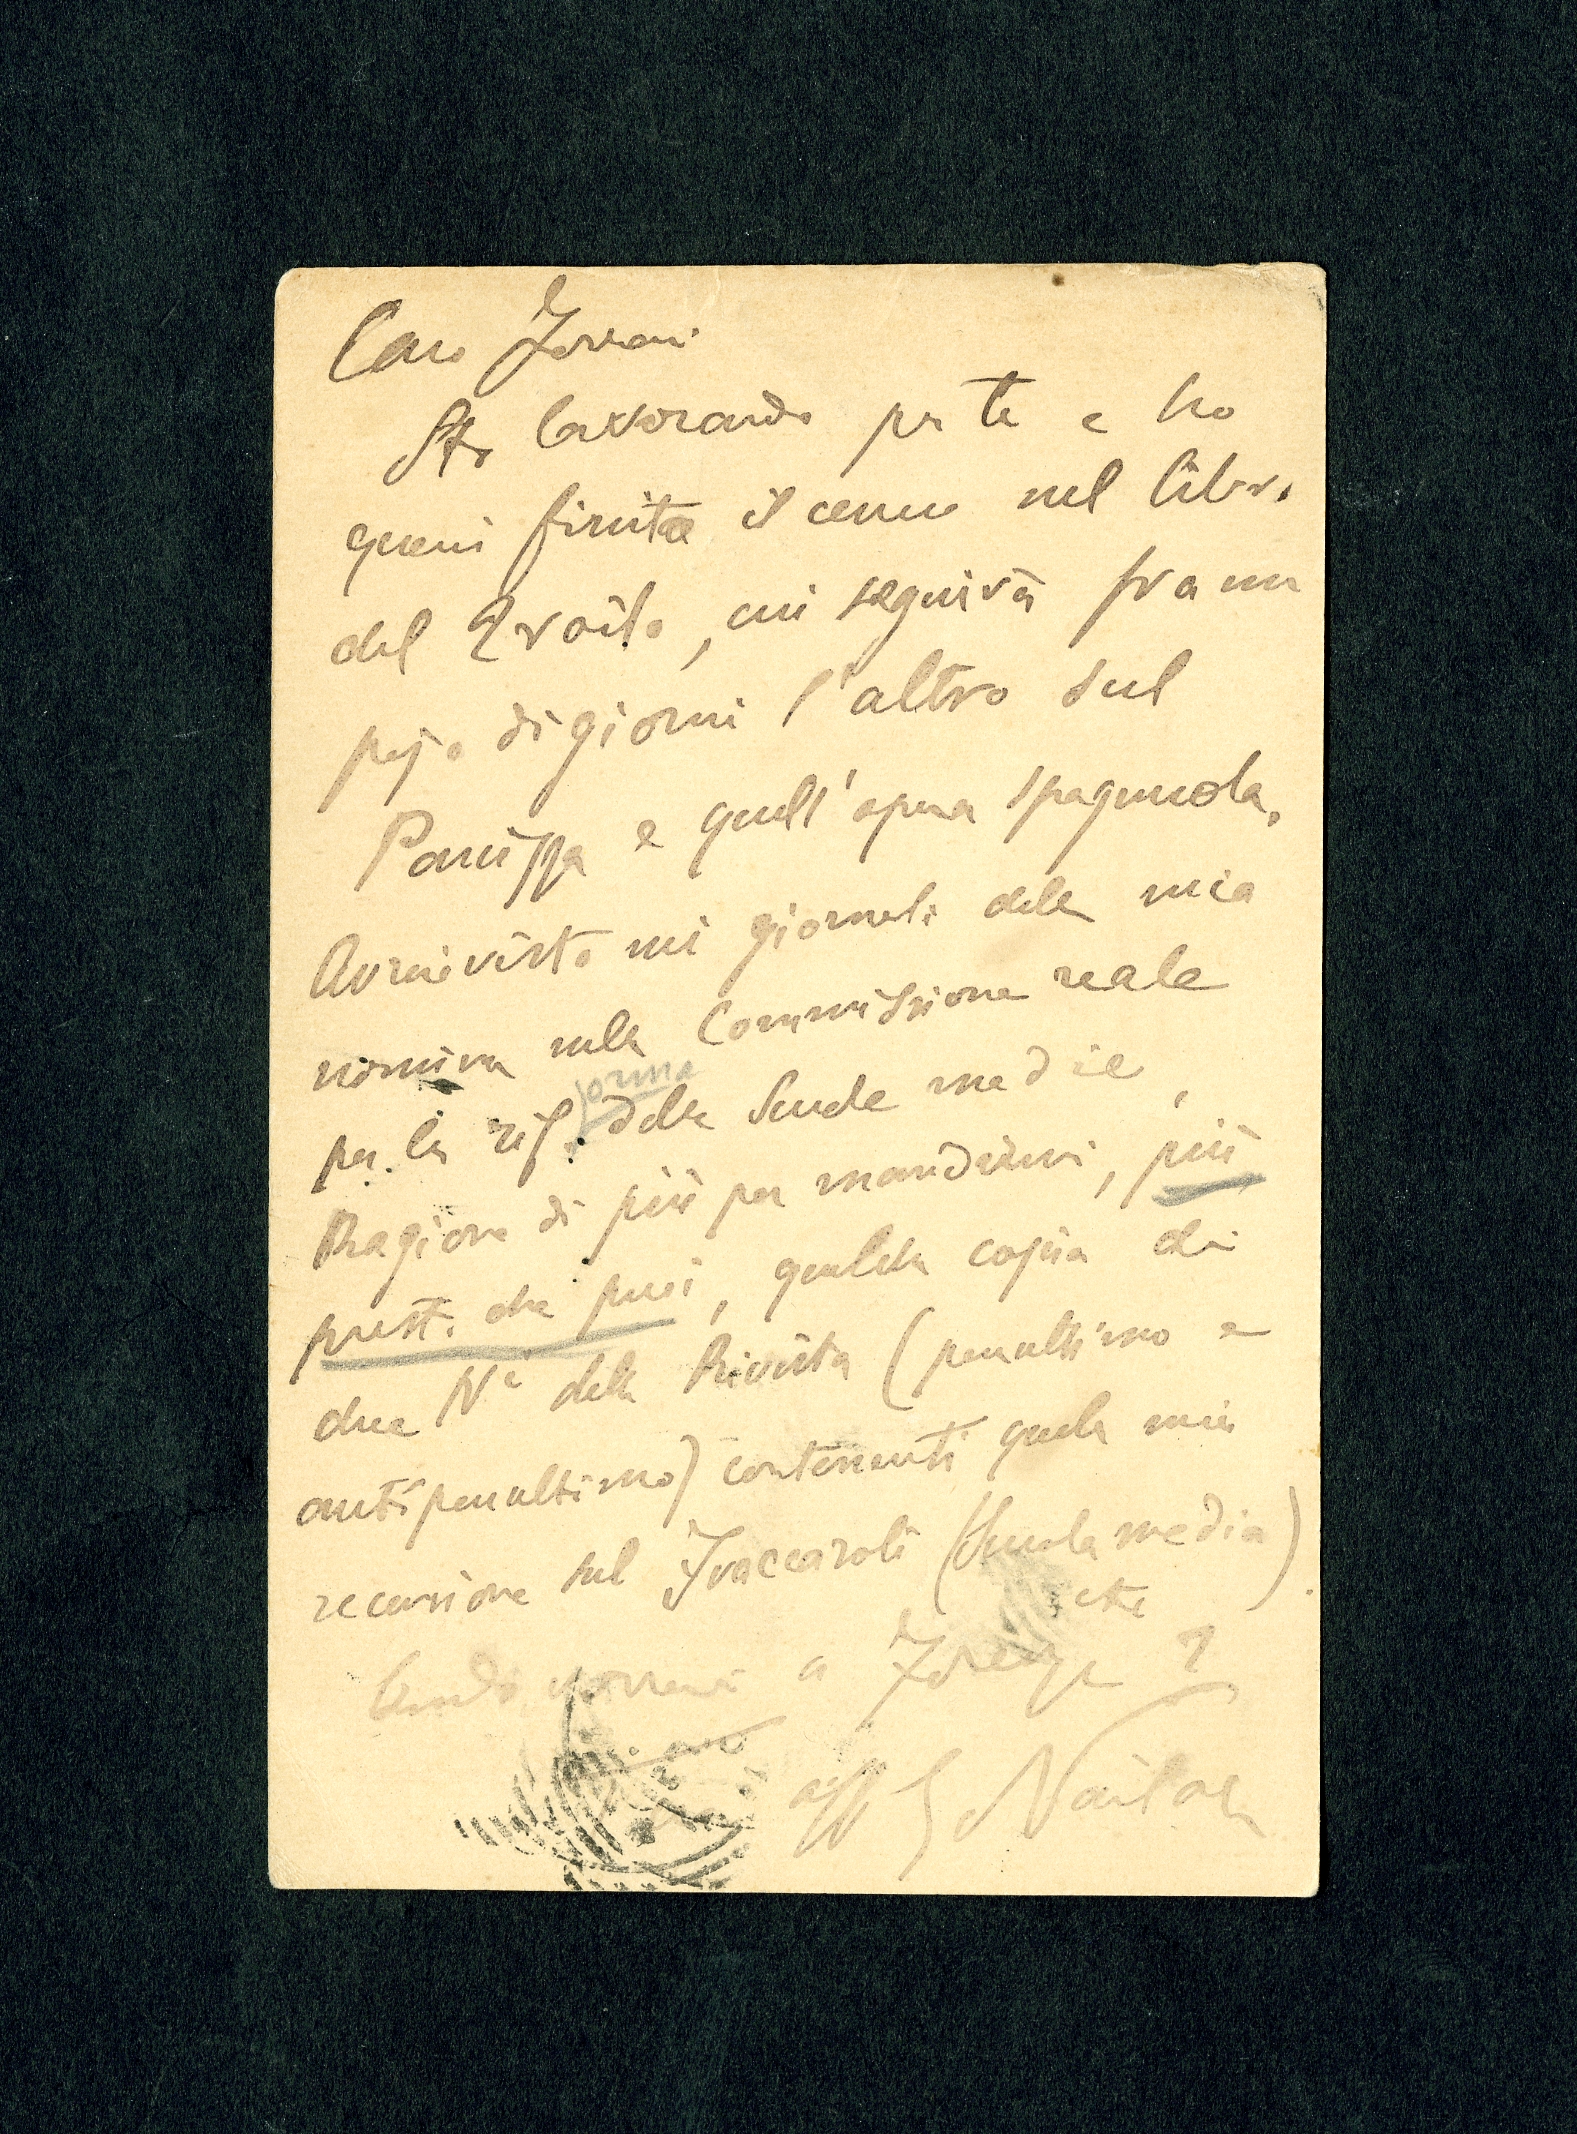 Caro Ferrari
Sto lavorando per te e ho
quasi finito il cenno sul libro
del Troilo, cui seguirà fra un
pajo di giorni l'altro sul
Panizza e quell'opera spagnuola.
Avrai visto nei giornali della mia
nomina nella Commissione reale
per la rif.orma delle Scuole medie,
Ragione di più per mandarmi, più
presto che puoi, qualche copia dei
due Ni della Rivista (penultimo e
antipenultimo) contenenti quella mia
recensione sul Fraccaroli (Scuola media).
etc
Quando verrai a Firenze?
aff